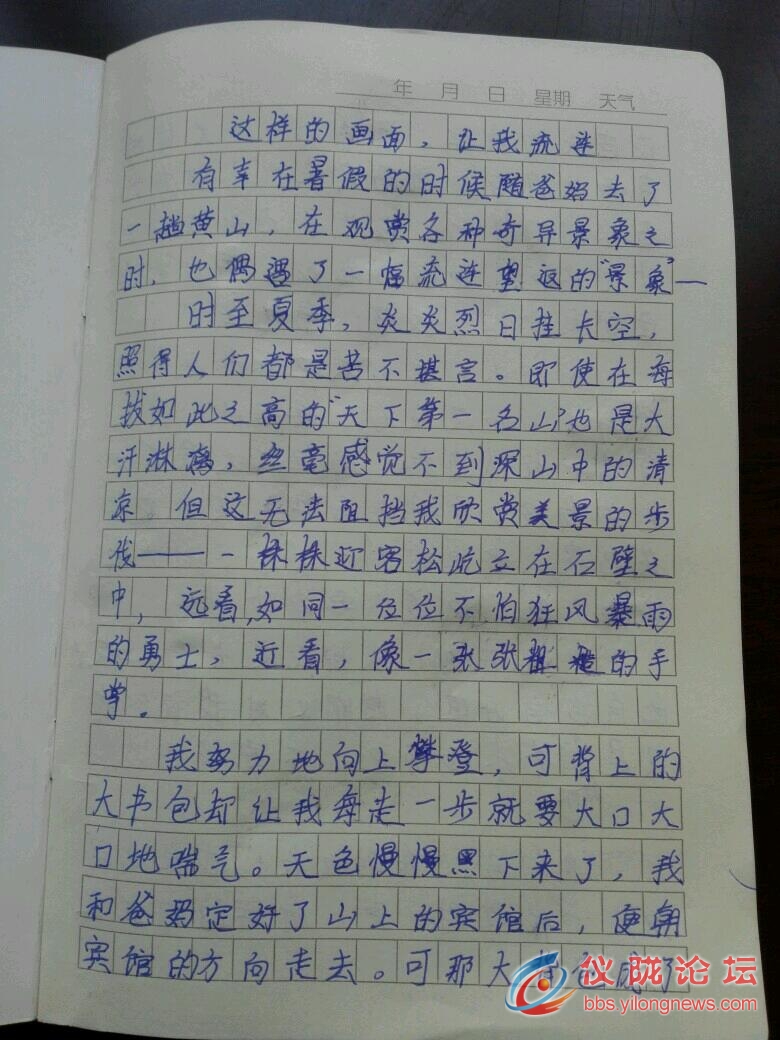 年 月 日 星期 天气
这样的画面，让我流连
有幸在暑假的时候随爸妈去了
一趟黄山，在观赏各种奇异景象之
时，也偶遇了一幅流连望返的“景象”—
时至夏季，炎炎烈日挂长空，
照得人们都是苦不堪言。即使在每
拔如此之高的“天下第一名山”也是大
汗淋漓，丝毫感觉不到深山中的清
凉 但这无法阻挡我欣赏美景的步
伐——一株株迎客松屹立在石壁之
中，远看，如同一位位不怕狂风暴雨
的勇士，近看，像一张张粗糙的手
掌。
我努力地向上攀登，可背上的
大书包却让我每走一步就要大口大
口地喘气。天色慢慢黑下来了，我
和爸妈定好了山上的宾馆后，便朝
宾馆的方向走去。可那大书包成了
仪陇论坛
bbs.yilongnews.com